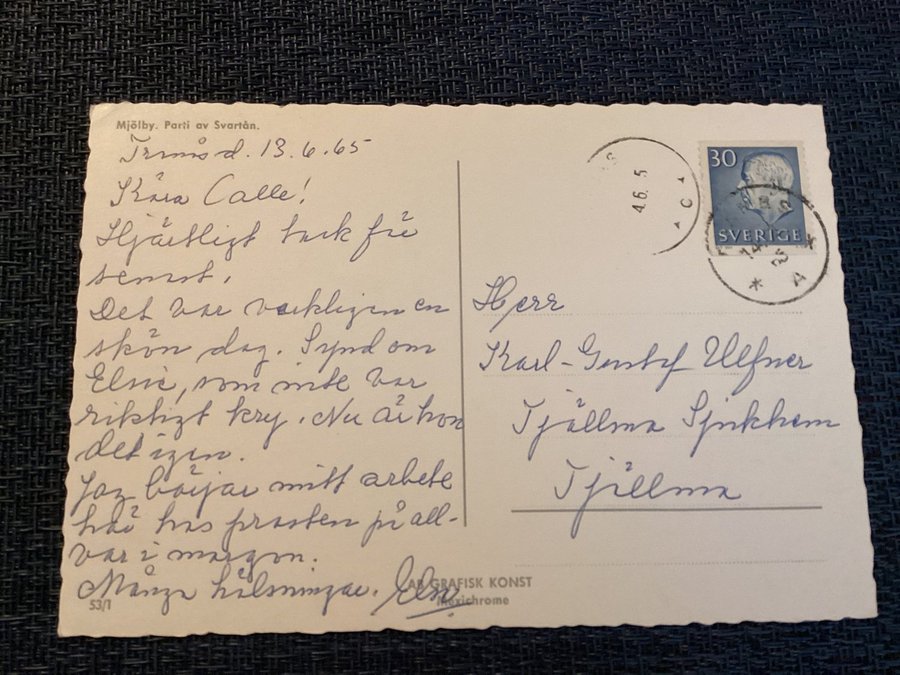 Mjölby. Parti av Svartån.
d. 13.6.65
Kära Calle!
Hjärtligt tack för
senast.
Det var verkligen en
skön dag. Synd om
Elsie, som inte var
riktigt kry. Nu är hon
det igen.
Jag börjar mitt arbete
här hos prosten på all-
var i morgon.
Många hälsningar.
53/1
AB GRAFISK KONST
Maxichrome
30
SVERIGE
4.6.5
C
A
Herr
Karl-Gustaf Ulfner
Tjällmo Sjukhem
Tjällmo